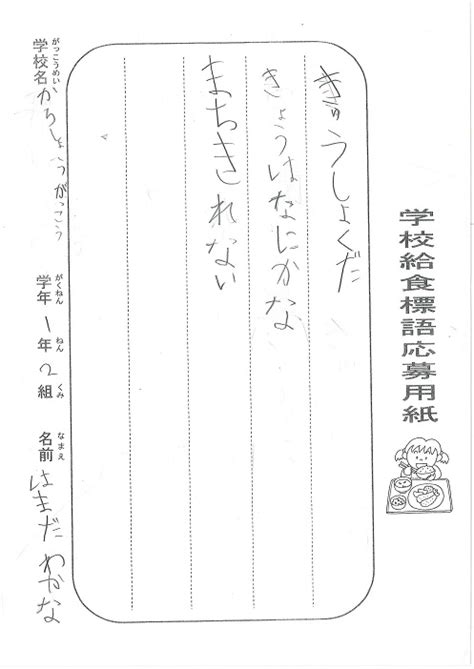 学校給食標語応募用紙
きゅうしょくだ
きょうはなにかな
まちきれない
がっこうめい
学校名 かろしょうがっこう
がくねん ねん くみ
学年 1年2組
なまえ
名前 はまだわかな